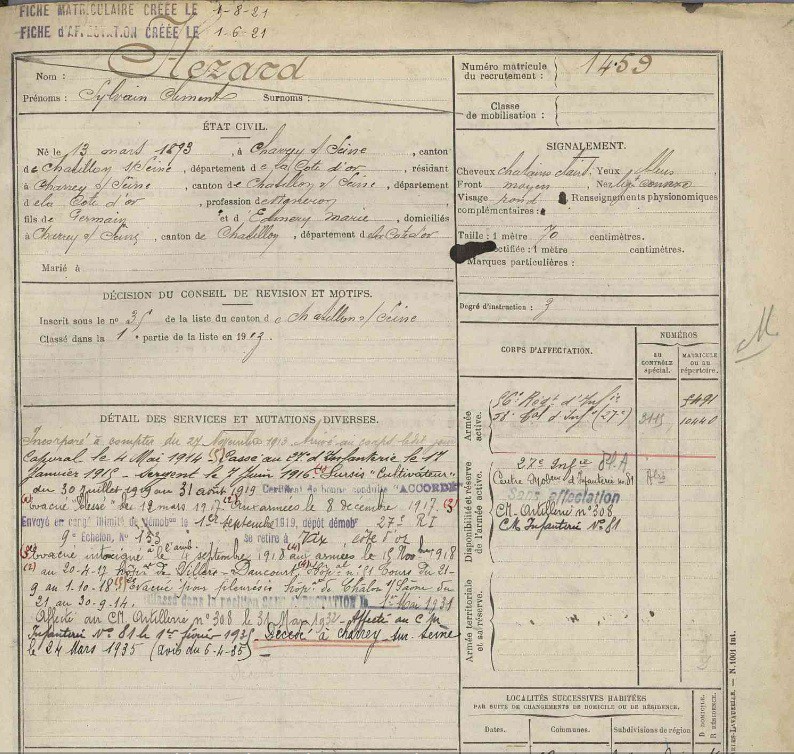 FICHE MATRICULAIRE CRÉÉE LE 1-8-21
FICHE d'AFFECTATION CRÉÉE LE 1-6-21
Nom : Hézard
Prénoms : Sylvain Clément Surnoms :
Numéro matricule du recrutement : 1459
Classe de mobilisation :
ÉTAT CIVIL.
Né le 13 mars 1893, à Charrey s/ Seine, canton
de Chatillon s/Seine, département de la Cote d'or, résidant
à Charrey s/ Seine, canton de Chatillon s/ Seine, département
de la Cote d'or, profession de Vigneron
fils de Germain et d' Marie, domiciliés
à Charrey s/ Seine, canton de Chatillon, département de la Cote d'or
Marié à
SIGNALEMENT.
Cheveux chatains Yeux bleus
Front moyen Nez
Visage rond Renseignements physionomiques
complémentaires :
Taille : 1 mètre 70 centimètres.
Taille rectifiée : 1 mètre centimètres.
Marques particulières :
Degré d'instruction : 3
DÉCISION DU CONSEIL DE REVISION ET MOTIFS.
Inscrit sous le n° 35 de la liste du canton de Chatillon s/ Seine
Classé dans la 1e partie de la liste en 1913.
CORPS D'AFFECTATION.
NUMÉROS
AU CONTRÔLE spécial.
MATRICULE OU AU répertoire.
Armée active.
Régt d'Infie
Bat d'Inf (27e)
10440
Disponibilité et réserve de l'armée active.
27e Infie
Centre Mobon d'Infanterie n° 81
Sans affectation
CM Artillerie n° 308
CM Infanterie N° 81
Armée territoriale et sa réserve.
M
DÉTAIL DES SERVICES ET MUTATIONS DIVERSES.
Incorporé à compter du 27 Novembre 1913. Arrivé au corps
Caporal le 4 Mai 1914 (5) Passé au d'Infanterie le 17
Janvier 1915 - Sergent le 7 Juin 1916. Sursis "Cultivateur"
du 30 juillet 1919 au 31 août 1919 Certificat de bonne conduite "ACCORDÉ"
Evacué blessé le 12 mars 1917. Aux armées le 8 décembre 1917. (3)
Envoyé en congé illimité de démobon le 1er septembre 1919, dépôt démobr 27e RI
9e Echelon, N° 153 se retire à Vix côte d'or
Evacué intoxiqué à l'amb. le 4 septembre 1918 aux armées le 15 Novbre 1918
(2) au 20-4-17 hôpal de Villers - Daucourt, Hôpal n° 21 Tours du 21-
9 au 1-10-18 (5) Evacué pour pleurésie hôpal de Chalon s/ Saône du
21 au 30-9-14.
Classé dans la position sans affectation le 1er Mai 1931
Affecté au CM Artillerie n° 308 le 31 Mars 1932 - Affecté au CM
Infanterie N° 81 le 1er février 1935 Décédé à Charrey sur Seine
le 24 Mars 1935 (avis du 6-4-35)
LOCALITÉS SUCCESSIVES HABITÉES
PAR SUITE DE CHANGEMENTS DE DOMICILE OU DE RÉSIDENCE.
Dates. Communes. Subdivisions de région
D DOMICILE.
R RÉSIDENCE.
N. 1001 Int.